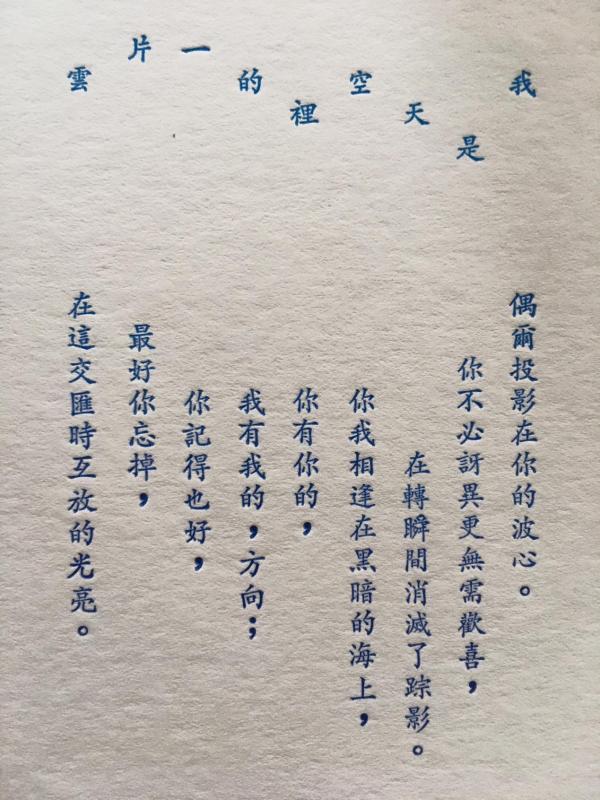 我是天空裡的一片雲
偶爾投影在你的波心。
你不必訝異更無需歡喜，
在轉瞬間消滅了踪影。
你我相逢在黑暗的海上，
你有你的，
我有我的，方向；
你記得也好，
最好你忘掉，
在這交匯時互放的光亮。